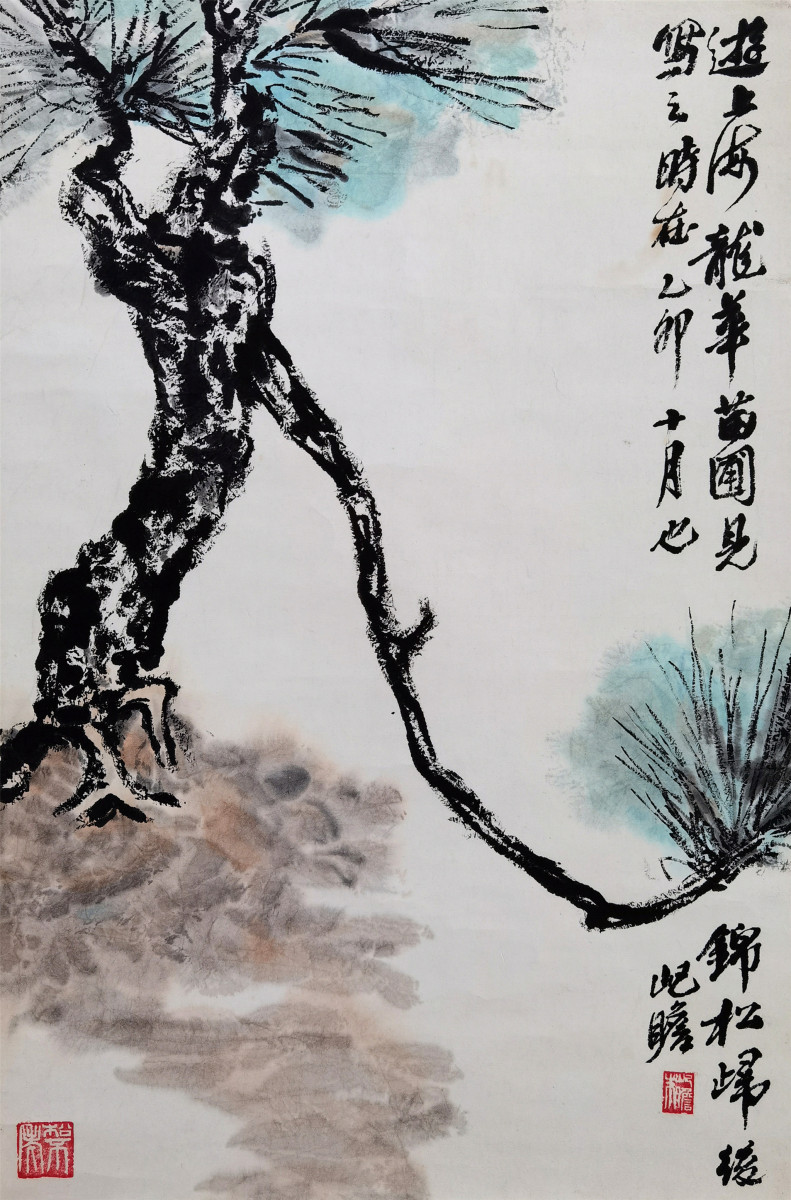 遊上海龍華苗圃見
錦松歸後
寫之時在乙卯十月也
屺瞻